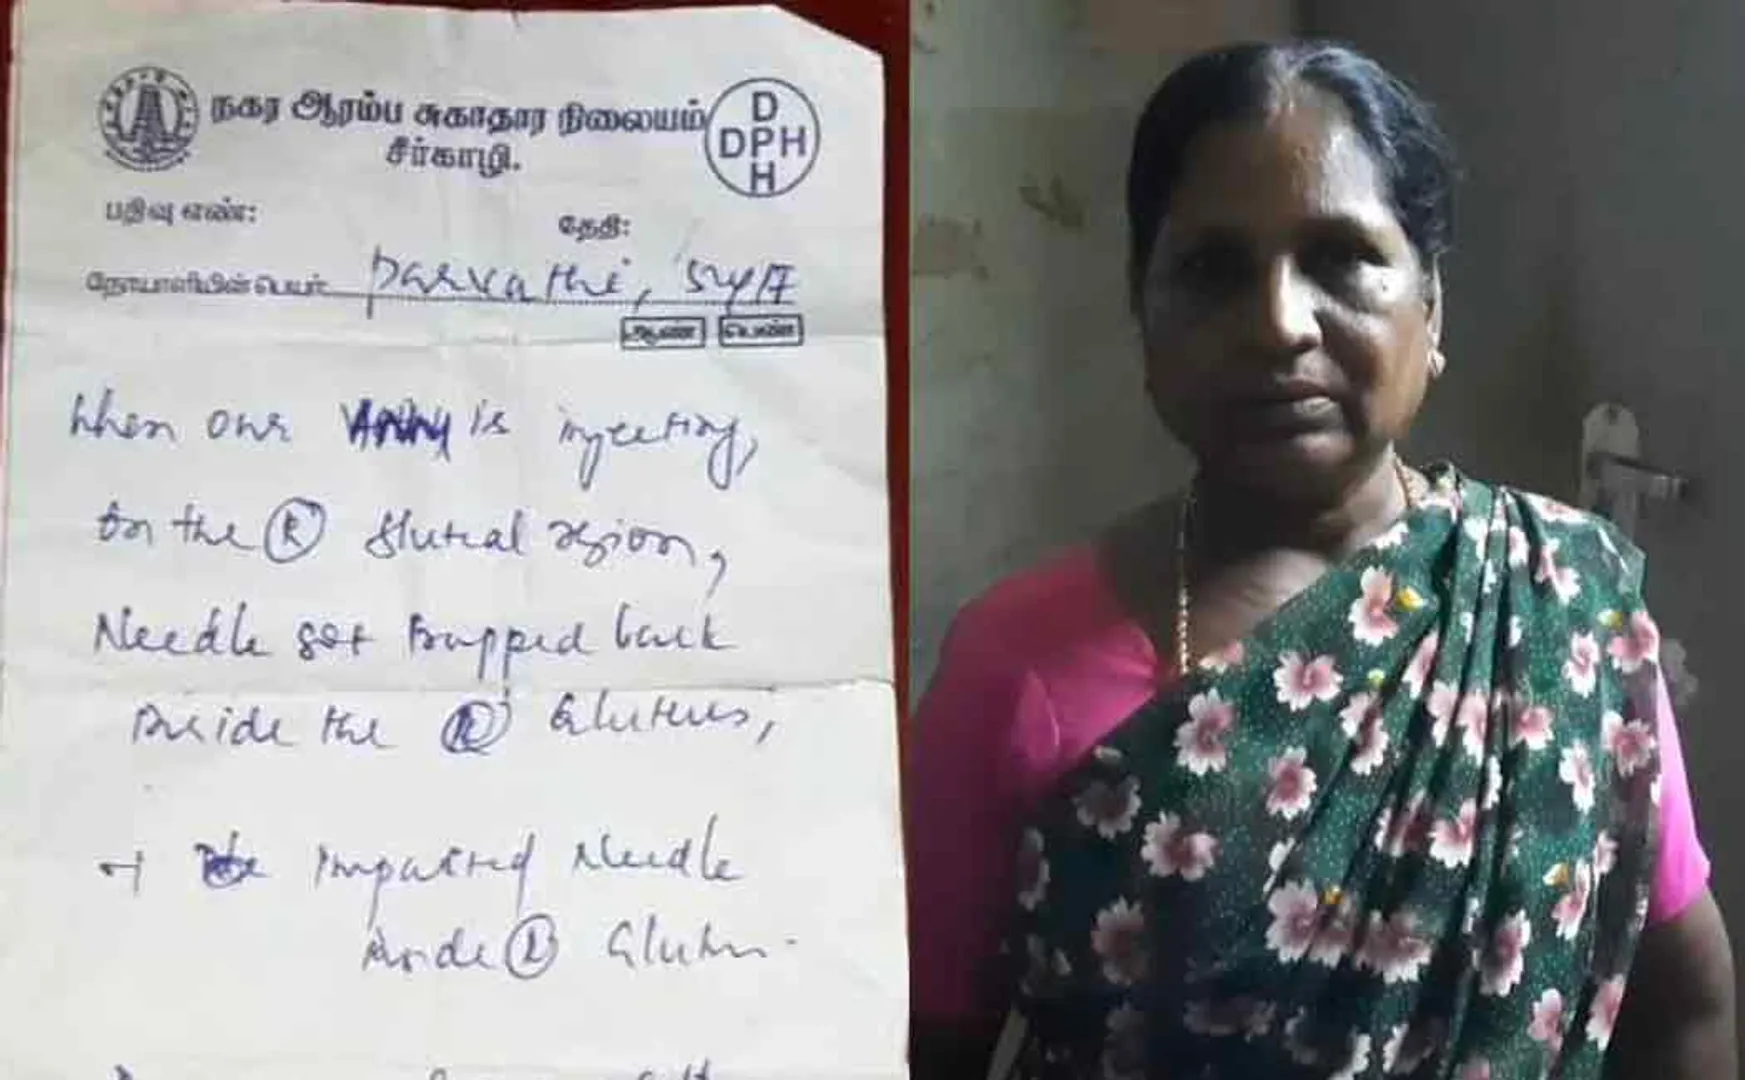 நகர ஆரம்ப சுகாதார நிலையம்
சீர்காழி.
D
DPH
H
பதிவு எண்:
தேதி:
நோயாளியின் பெயர் Parvathi, 54/F
ஆண் பெண்
When our is injecting,
on the Ⓡ Gluteal region,
Needle got trapped back
inside the Ⓡ Gluteus,
Impacted Needle
inside Gluteus